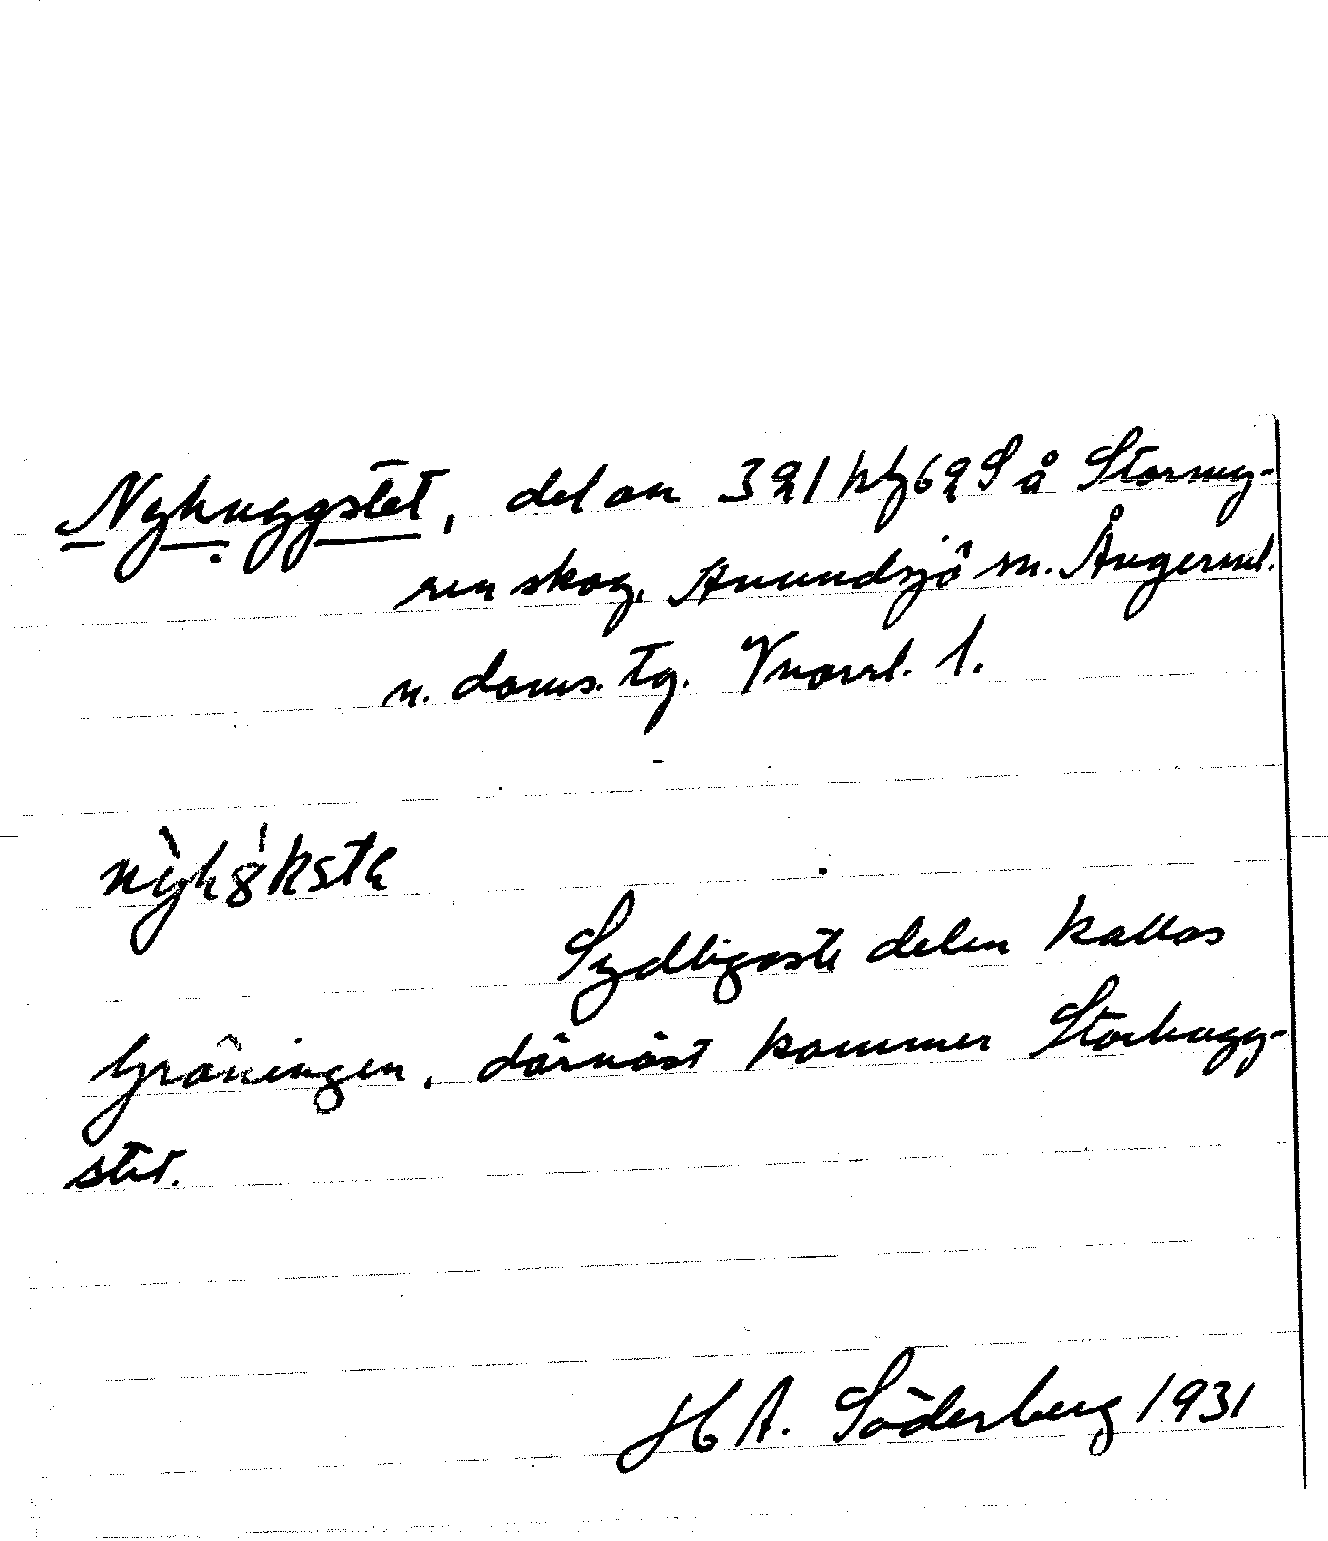 Nyhuggstet, del av 321 h/g62S å Stormy-
ren skog, Anundsjö sn. Ångerml.
n. doms. tg. Vnorrl. l.
Sydligaste delen kallas
Gräningen, därnäst kommer Storhugg-
stet.
H A. Söderberg 1931